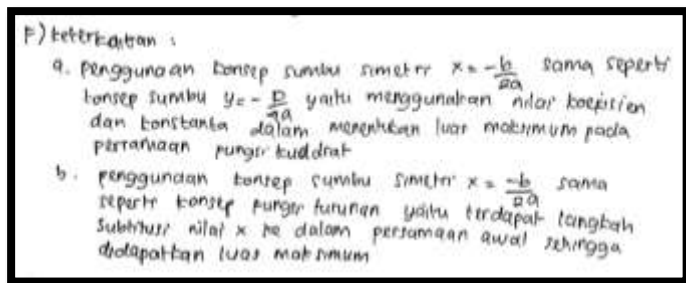 F) keterkaitan :
a. penggunaan konsep sumbu simetri x = -b/2a sama seperti
konsep sumbu y = -D/4a yaitu menggunakan nilai koefisien
dan konstanta dalam menentukan luas maksimum pada
persamaan fungsi kuadrat
b. penggunaan konsep sumbu simetri x = -b/2a sama
seperti konsep fungsi turunan yaitu terdapat langkah
subtitusi nilai x ke dalam persamaan awal sehingga
didapatkan luas maksimum